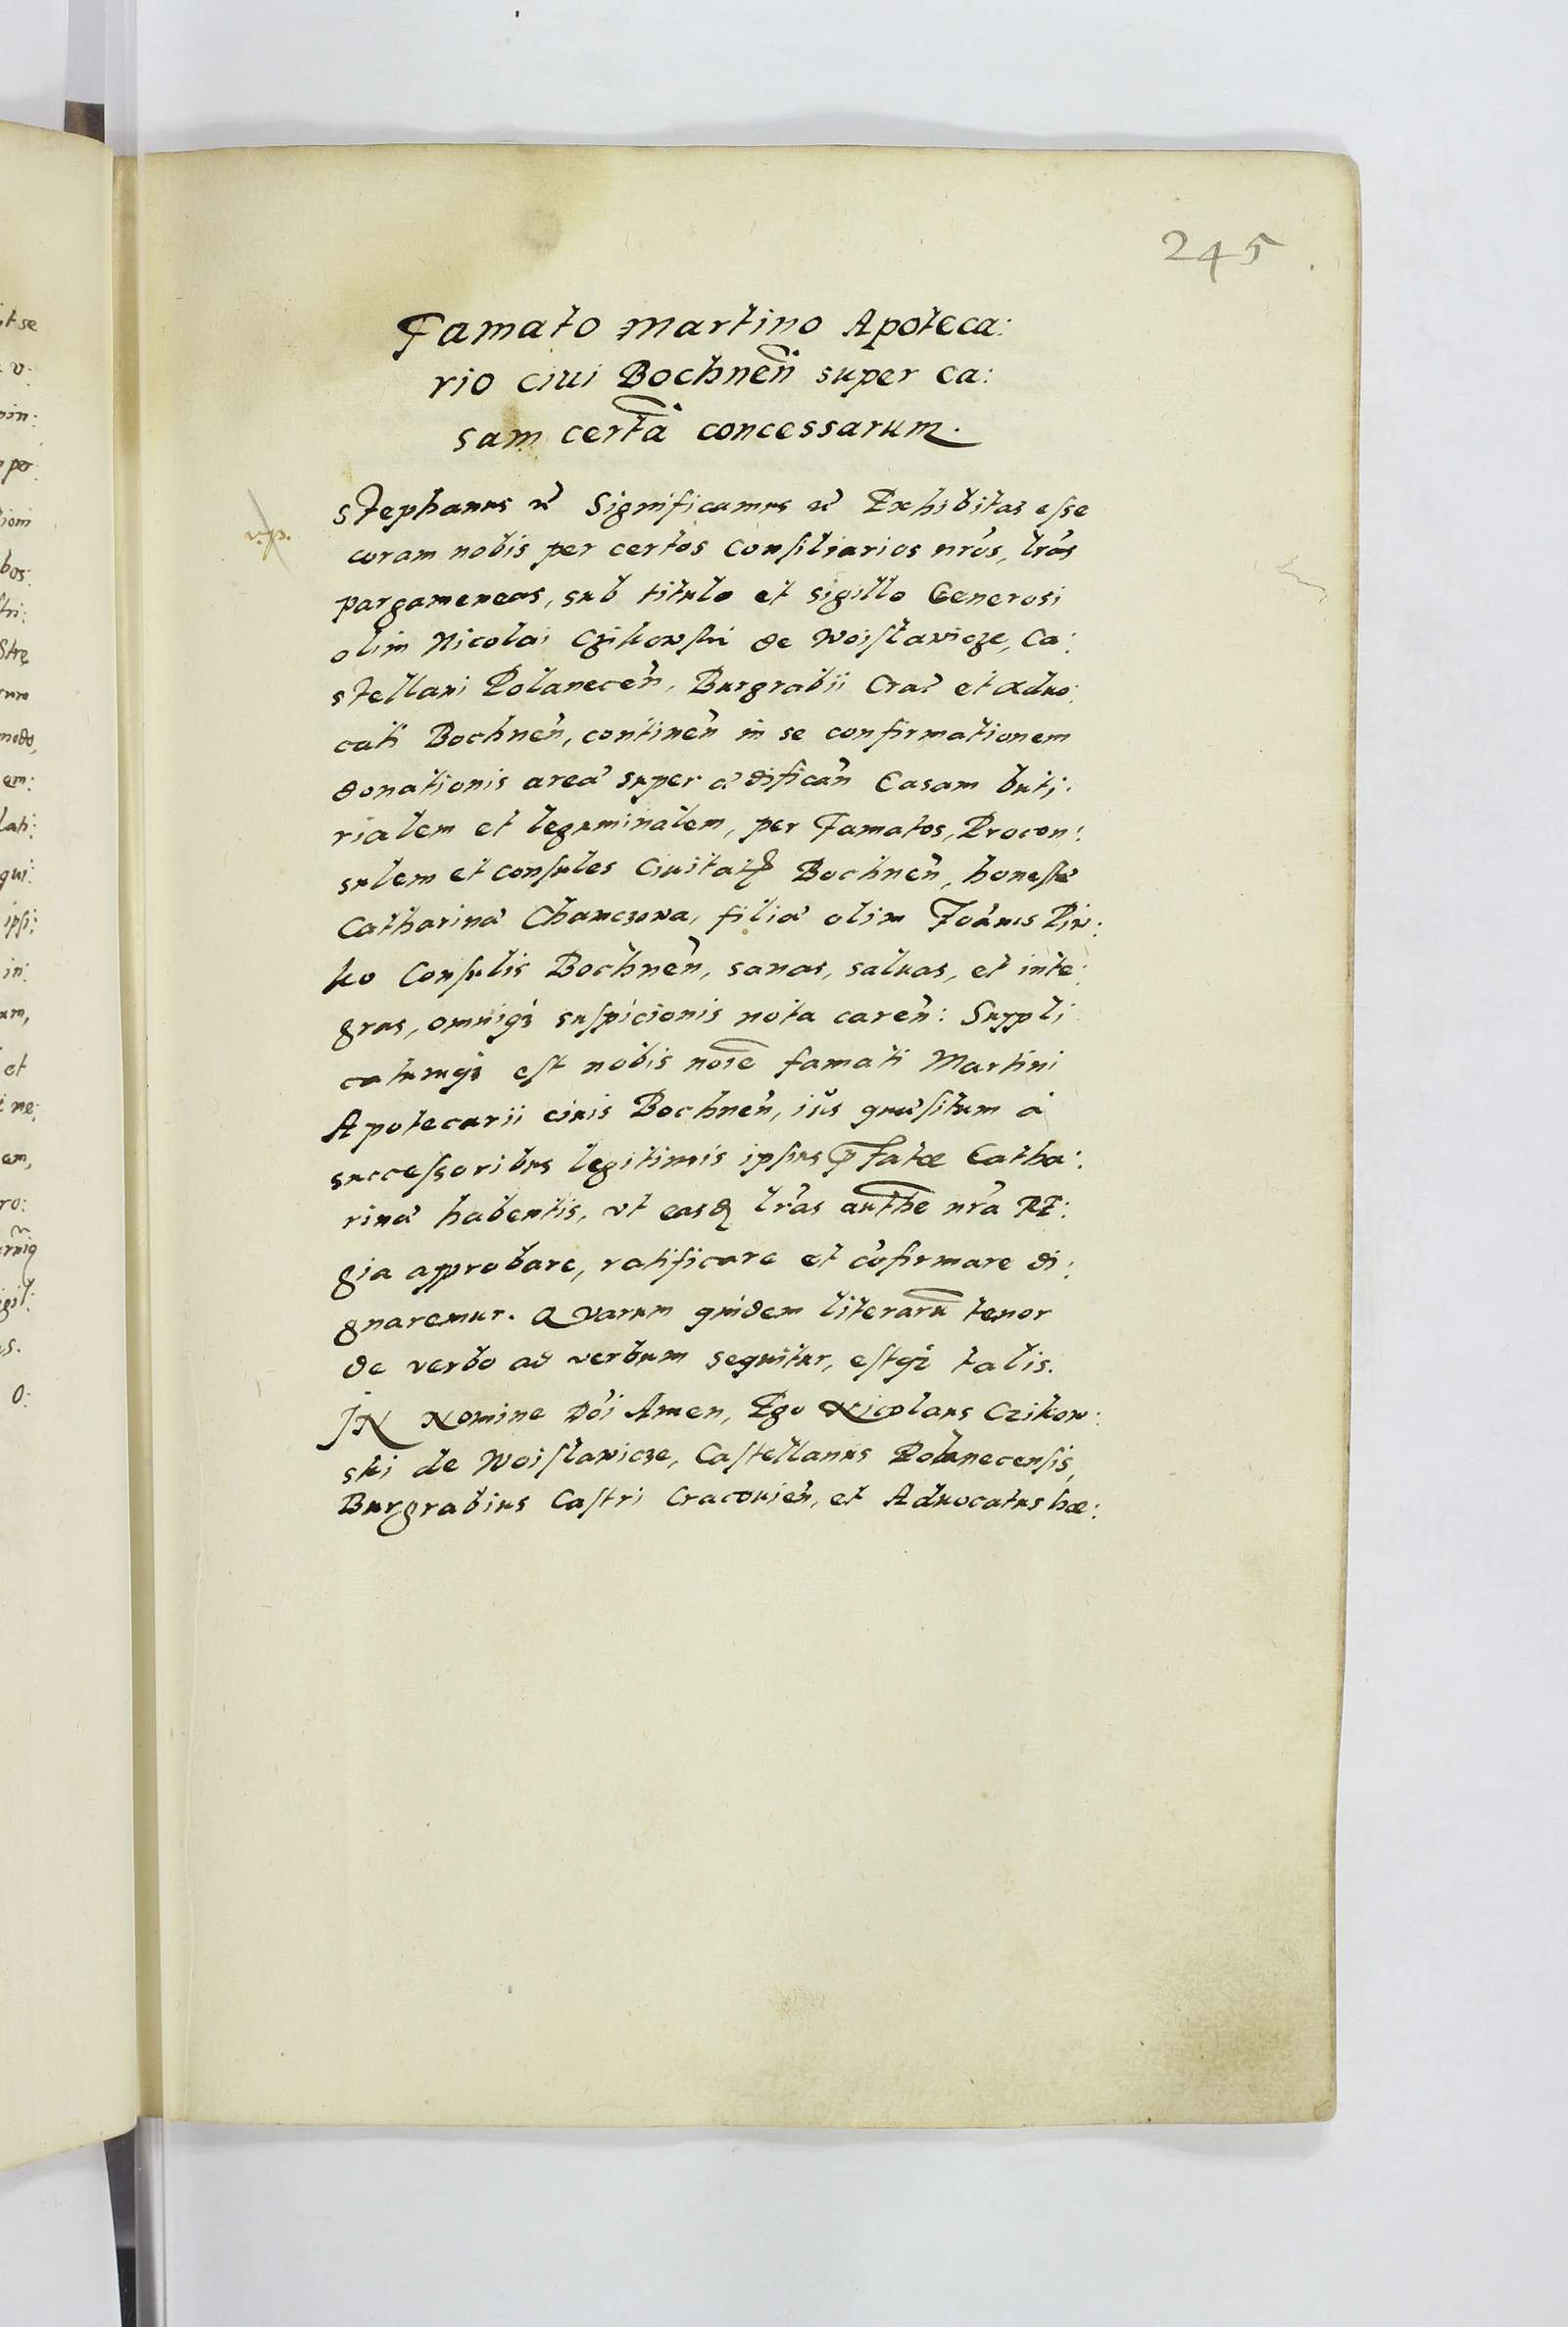 245
Famato Martino Apoteca:
rio ciui Bochnen̄ super ca:
sam certā concessarum.
Stephanus etc̃ Significamus etc̃ Exhibitas esse
coram nobis per certos Consiliarios nr̃os, lr̃as
pargameneas, sub titulo et sigillo Generosi
olim Nicolai Czikowski de Woislawicze, Ca:
stellani Polanecen̄, Burgrabii Crac̃ et Aduo:
cati Bochnen̄, continen̄ in se confirmationem
donationis areæ super ædifican̄ Casam buti:
rialem et leguminalem, per Famatos, Procon:
sulem et consules Ciuitatꝭ Bochnen̄, honestæ
Catharinæ Chamczowa, filiæ olim Joãnis Piw:
ko Consulis Bochnen̄, sanas, saluas, et inte:
gras, omniqꝫ suspicionis nota caren̄: Suppli
catumqꝫ est nobis noĩe famati Martini
Apotecarii ciuis Bochnen̄, ius quæsitum à
successoribus legitimis ipsius p̃fatæ Catha:
rinæ habentis, vt easdꝫ lr̃as autĥe nr̃a RE:
gia approbare, ratificare et cõfirmare di:
gnaremur. Quarum quidem literarū tenor
de verbo ad verbum sequitur, estqꝫ talis.
IN Nomine Dõi Amen, Ego Nicolaus Czikow:
ski de Woislawicze, Castellanus Polanecensis,
Burgrabius Castri Cracouien̄, et Aduocatus hæ: